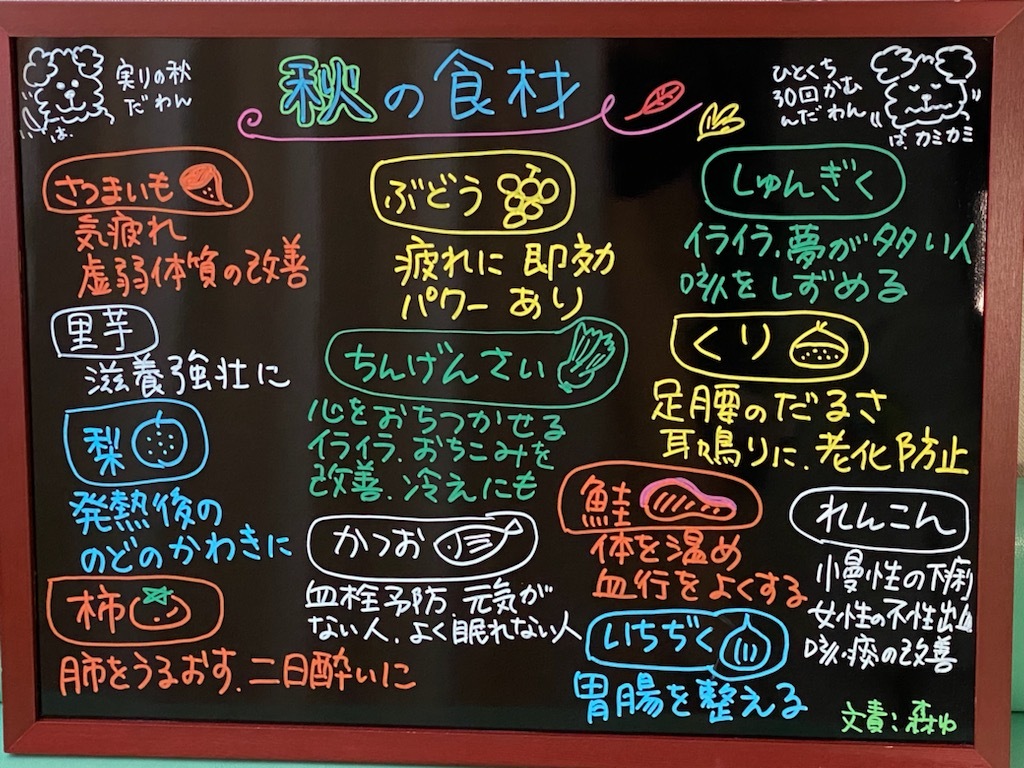 秋の食材
実りの秋
だわん
は、
ひとくち
30回かむ
んだわん
は、カミカミ
さつまいも
気疲れ
虚弱体質の改善
里芋
滋養強壮に
梨
発熱後の
のどのかわきに
柿
肺をうるおす.二日酔いに
ぶどう
疲れに即効
パワーあり
ちんげんさい
心をおちつかせる
イライラ.おちこみを
改善.冷えにも
かつお
血栓予防.元気が
ない人.よく眠れない人
しゅんぎく
イライラ.夢が多い人
咳をしずめる
くり
足腰のだるさ
耳鳴りに.老化防止
鮭
体を温め
血行をよくする
いちぢく
胃腸を整える
れんこん
慢性の下痢
女性の不性出血
咳・痰の改善
文責:森ゆ